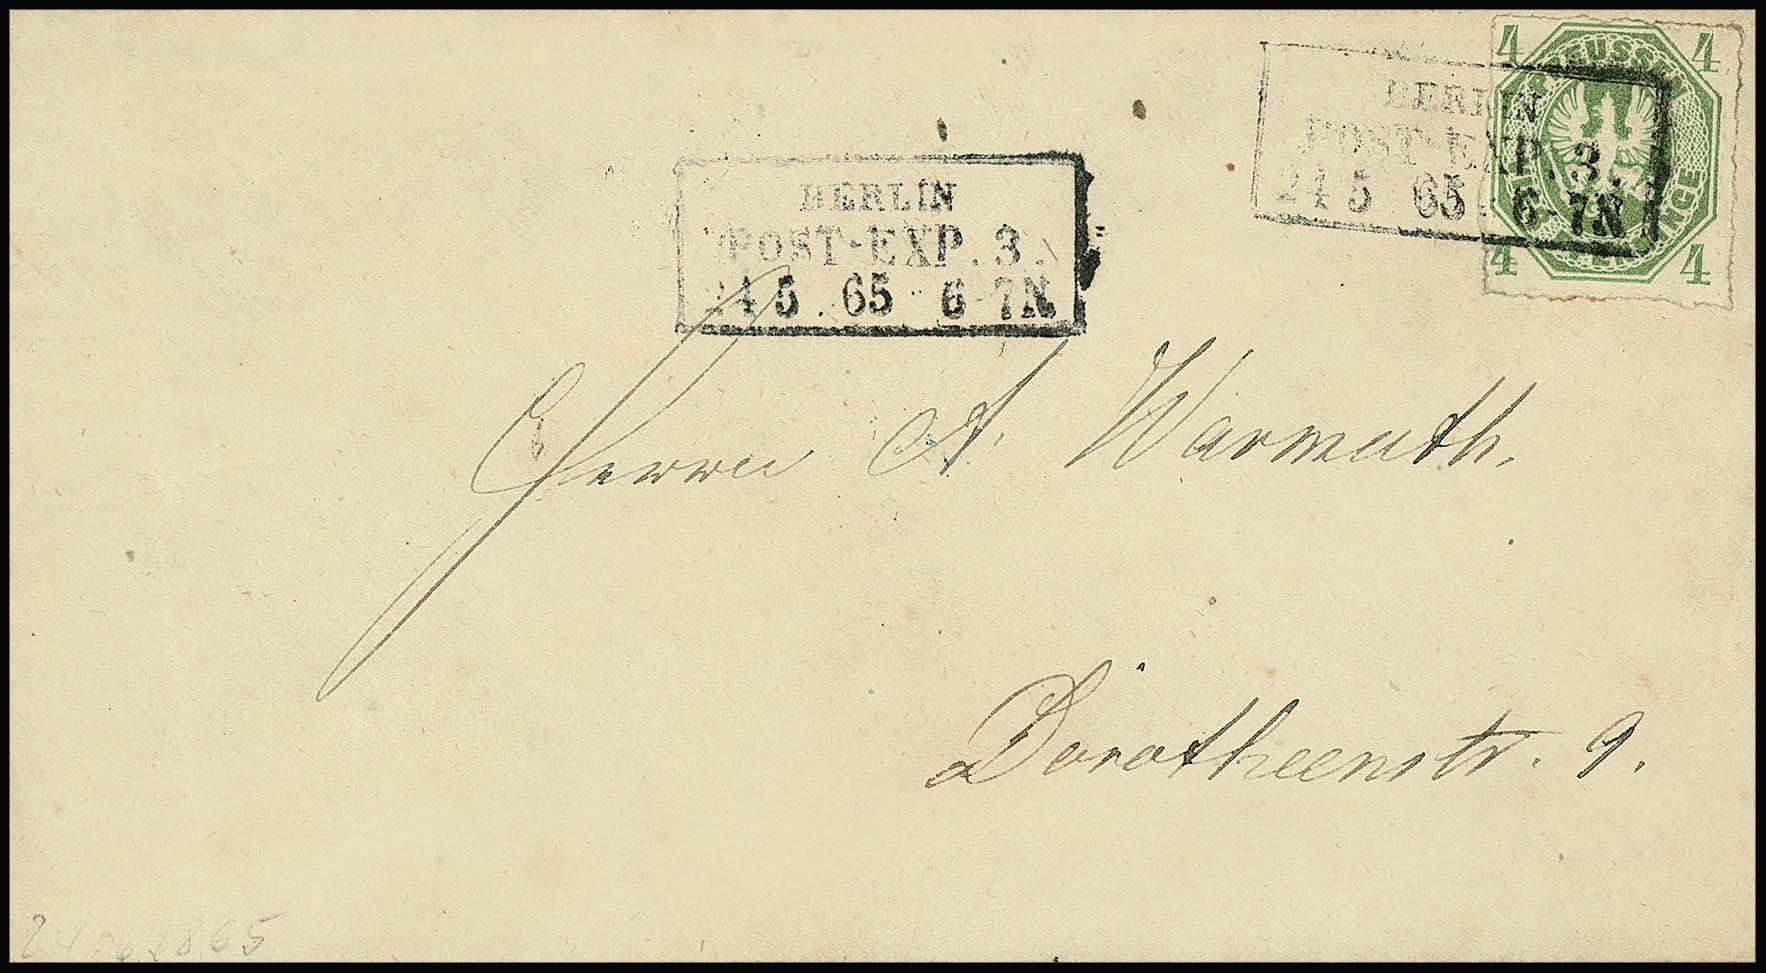 4 4
PREUSSEN
BERLIN
POST-EXP. 3.
24 5 65 6-7N
4 PFENNINGE 4
BERLIN
POST-EXP. 3.
24 5 . 65 6-7N
Herrn A. Warmuth.
Dorotheenstr. 9.
24.6.1865